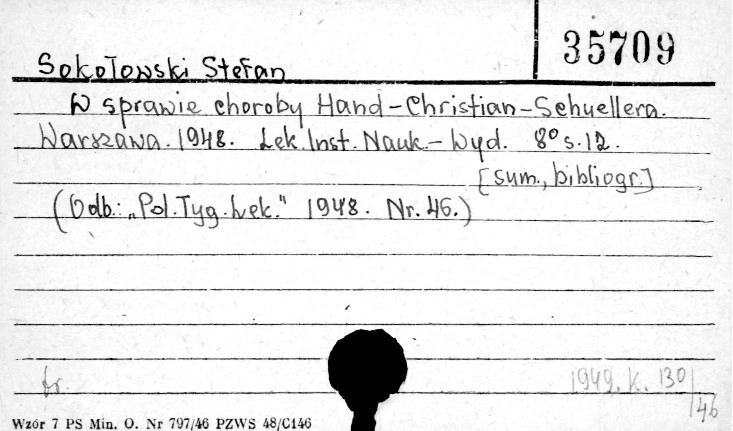 35709
Sokołowski Stefan
W sprawie choroby Hand-Christian-Schuellera.
Warszawa. 1948. Lek. Inst. Nauk.-Wyd. 8° s. 12.
[sum., bibliogr.]
(Odb.: „Pol. Tyg. Lek." 1948. Nr. 46.)
1949. K. 130/46
Wzór 7 PS Min. O. Nr 797/46 PZWS 48/C146